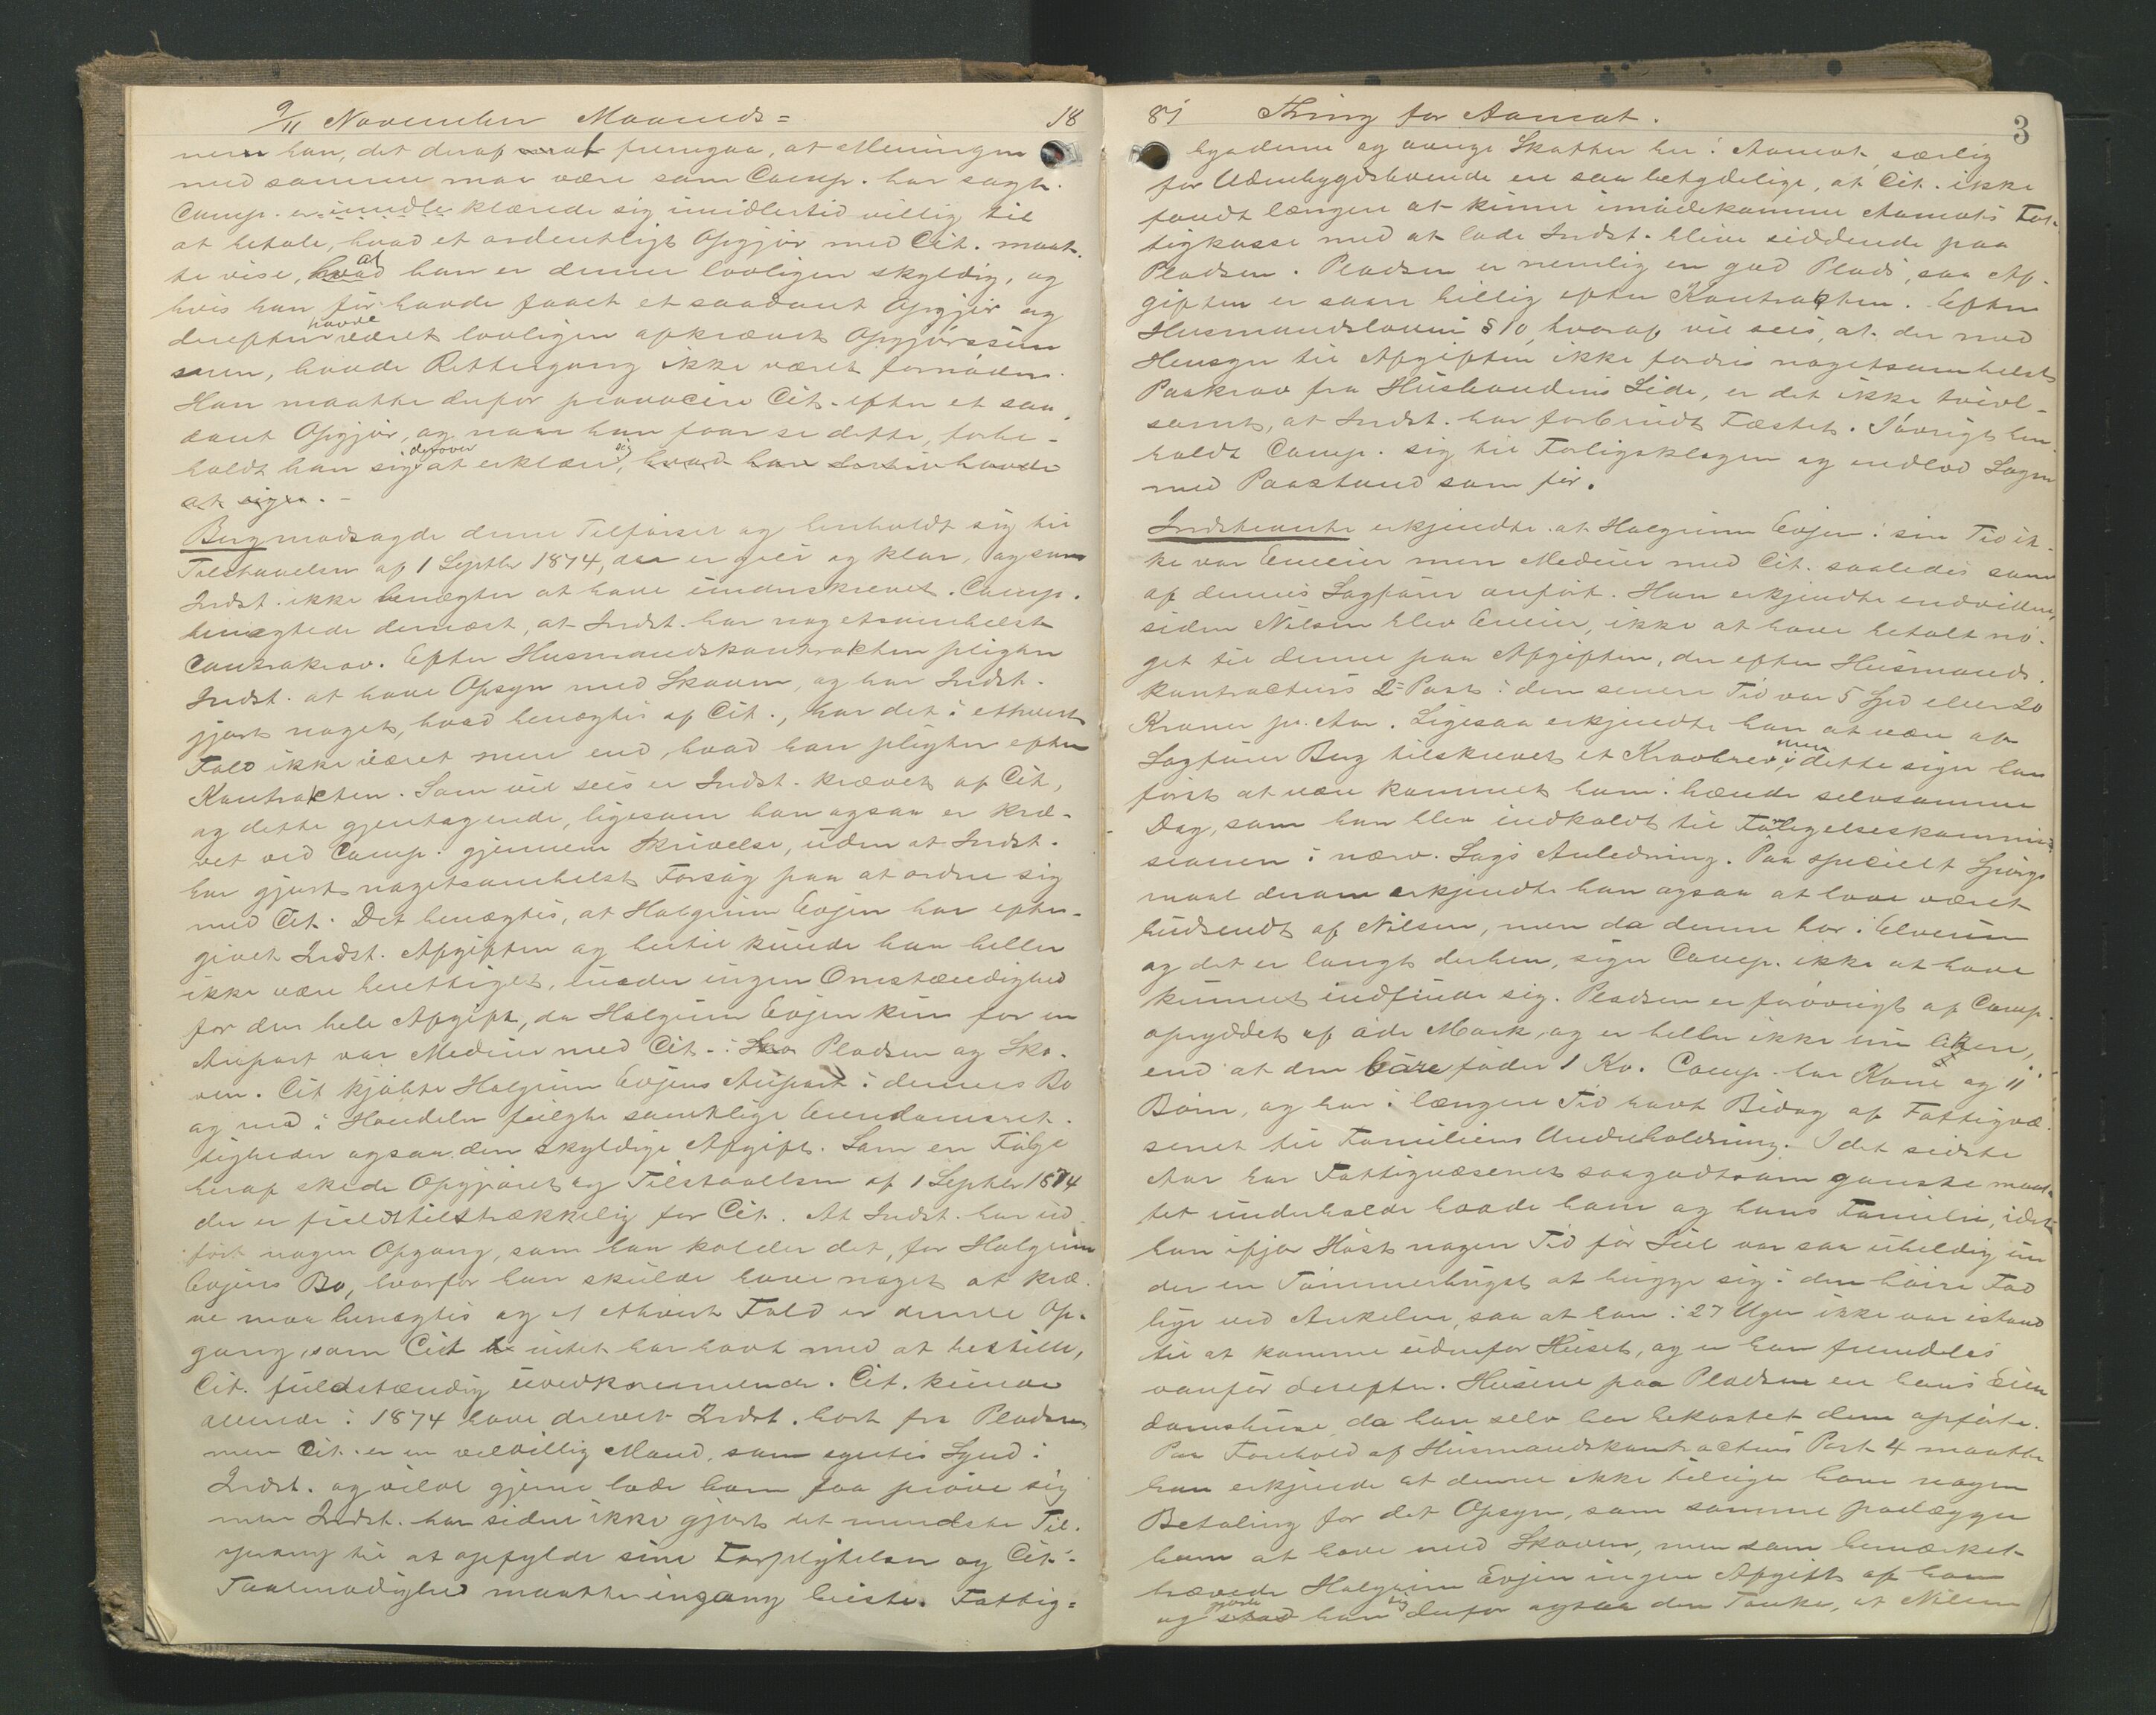 9/11 November Maaneds= 18
ner han, det deraf fremgaa, at Meningen
med samme maa være som Comp. har sagt.
Comp. erklærede sig imidlertid villig til
at betale, hvad et ordentligt Opgjør med Cit. maat-
te vise, at han er denne lovligen skyldig, og
hvis han før havde faaet et saadant Opgjør og
derefter havde været lovligen afkrævet Opgjørssum
men, havde Rettergang ikke været fornøden.
Han maatte derfor provocere Cit. efter et saa-
dant Opgjør, og naar han faar se dette, forbe-
holdt han sig derover at erklære sig, hvad han havde
at sige. -
Berg modsagde denne Tilførsel og henholdt sig til
Tilstaaelsen af 1 Septbr 1874, der er grei og klar, og som
Indst. ikke benægter at have underskrevet. Comp.
benægtede dernæst, at Indst. har nogetsomhelst
Contrakrav. Efter Husmandskontrakten pligter
Indst. at have Opsyn med Skoven, og har Indst.
gjort noget, hvad benægtes af Cit., har det i ethvert
Fald ikke været mere end, hvad han pligter efter
Kontrakten. Som vil sees er Indst. krævet af Cit,
og dette gjentagende, ligesom han ogsaa er kræ-
vet ved Comp. gjennem Skrivelse, uden at Indst.
har gjort nogetsomhelst Forsøg paa at ordne sig
med Cit. Det benægtes, at Halgrim Evjen har efter-
givet Indst. Afgiften og hertil kunde han heller
ikke være berettiget, under ingen Omstændighed
for den hele Afgift, da Halgrim Evjen kun for en
Anpart var Medeier med Cit. i Pladsen og Sko-
ven. Cit kjøbte Halgrim Evjens Anpart i dennes Bo
og med i Handelen fulgte samtlige Eiendomsret-
tigheder ogsaa den skyldige Afgift. Som en Følge
heraf skede Opgjøret og Tilstaaelsen af 1 Septbr 1874
der er fuldt tilstrækkelig for Cit. At Indst. har ud-
ført nogen Opgang, som han kalder det, for Halgrim
Evjens Bo, hvorfor han skulde have noget at kræ-
ve maa benægtes og i ethvert Fald er denne Op-
gang, som Cit intet har havt med at bestille,
Cit. fuldstændig uvedkommende. Cit. kunde
allerede i 1874 have drevet Indst. bort fra Pladsen,
men Cit. er en velvillig Mand, som syntes Synd i
Indst. og vilde gjerne lade ham faa prøve sig
men Indst. har siden ikke gjort det mindste Til-
sprang til at opfylde sine Forpligtelser og Cit.'
Taalmodighed maatte engang briste. Fattig=
81 Thing for Aamot. 3
byrderne og øvrige Skatter her i Aamot, særlig
for Udenbygdsboende ere saa betydelige, at Cit. ikke
fandt længere at kunne imødekomme Aamots Fat-
tigkasse med at lade Indst. blive siddende paa
Pladsen. Pladsen er nemlig en god Plads, saa Af-
giften er saare billig efter Kontrakten. Efter
Husmandsloven § 10, hvoraf vil sees, at der med
Hensyn til Afgiften ikke fordres nogetsomhelst
Paakrav fra Husbondens Side, er det ikke tvivl-
somt, at Indst. har forbrudt Fæstet. Iøvrigt hen
holdt Comp. sig til Forligsklagen og indlod Sagen
med Paastand som før.
Indstevnte erkjendte at Halgrim Evjen i sin Tid ik-
ke var Eneeier men Medeier med Cit. saaledes som
af dennes Sagfører anført. Han erkjendte endvidere,
siden Nilsen blev Eneeier, ikke at have betalt no-
get til denne paa Afgiften, der efter Husmands-
kontractens 2= Post i den senere Tid var 5 Spd eller 20
Kroner pr. Aar. Ligesaa erkjendte han at være af
Sagfører Berg tilskrevet et Kravbrev, men dette siger han
først at være kommet ham i hænde selvsamme
Dag, som han blev indkaldt til Forligelseskommis-
sionen i nærv. Sags Anledning. Paa specielt Spørgs
maal derom erkjendte han ogsaa at have været
budsendt af Nilsen, men da denne bor i Elverum
og det er langt derhen, siger Comp. ikke at have
kunnet indfinde sig. Pladsen er forøvrigt af Comp.
opryddet af øde Mark, og er heller ikke
end at den bare føder 1 Ko. Comp. har Kone og 11
Børn, og har i længere Tid havt Bidrag af Fattigvæ-
senet til Familiens Underholdning. I det sidste
Aar har Fattigvæsenet saagodtsom ganske maat-
tet underholde baade ham og hans Familie, idet
han ifjor Høst nogen Tid før Jul var saa uheldig un
der en Tømmerhugst at hugge sig i den høire Fod
lige ved Ankelen, saa at han i 27 Uger ikke var istand
til at komme udenfor Huset, og er han fremdeles
vanfør derefter. Husene paa Pladsen ere hans Eien
domshuse, da han selv har bekostet dem opførte.
Paa Forehold af Husmandskontractens Post 4 maatte
han erkjende at denne ikke tilsiger ham nogen
Betaling for det Opsyn, som samme paalægger
ham at have med Skoven, men som bemærket
krævede Halgrim Evjen ingen Afgift af ham
og gjorde han sig derfor ogsaa den Tanke, at Nilsen